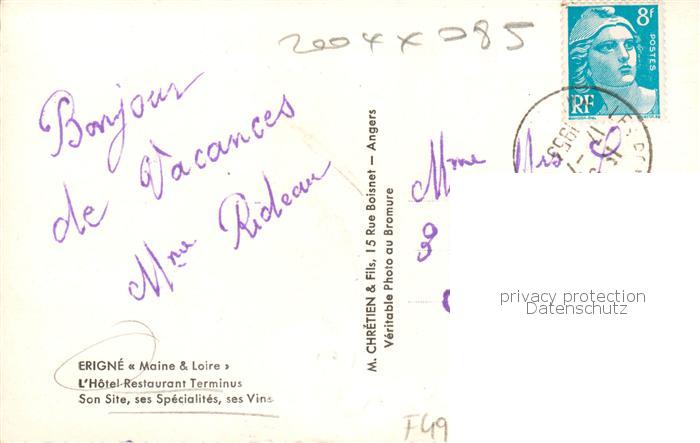 2004XX085
8f
POSTES
RF
1953
Bonjour
de Vacances
Mme Rideau
Mme
M. CHRÉTIEN & Fils, 15 Rue Boisnet — Angers
Véritable Photo au Bromure
privacy protection
Datenschutz
ERIGNÉ « Maine & Loire »
L'Hôtel-Restaurant Terminus
Son Site, ses Spécialités, ses Vins
F49